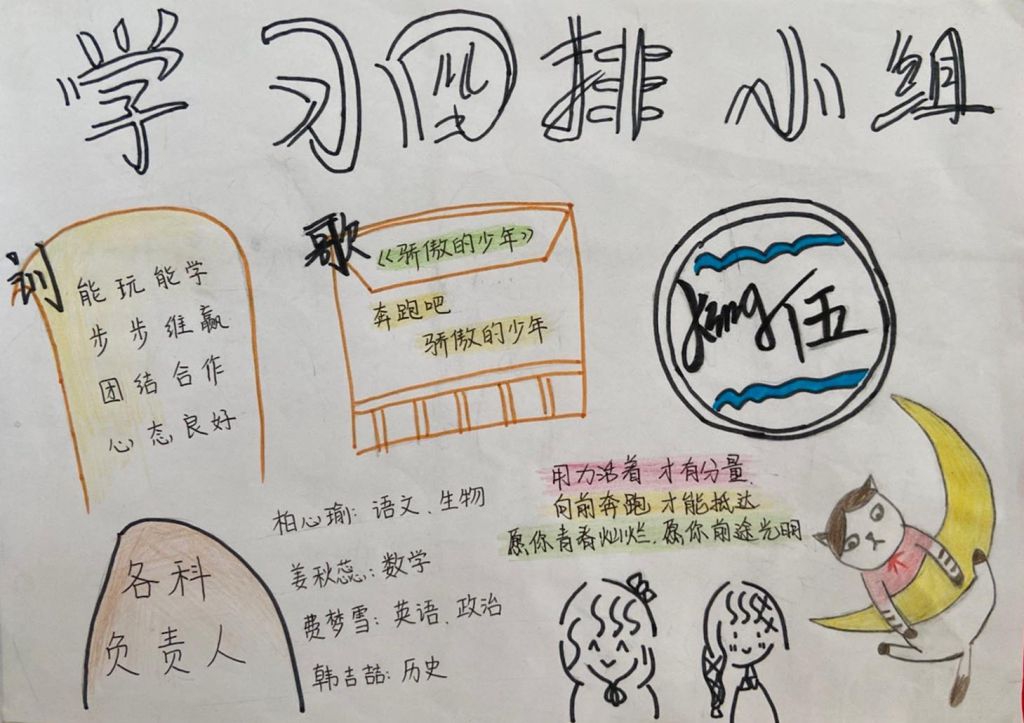 学习型排小组
训
能玩能学
步步维赢
团结合作
心态良好
歌
《骄傲的少年》
奔跑吧
骄傲的少年
King伍
用力活着 才有分量.
向前奔跑 才能抵达
愿你青春灿烂.愿你前途光明
各科
负责人
柏心瑜:语文、生物
姜秋蕊:数学
费梦雪:英语、政治
韩吉喆:历史